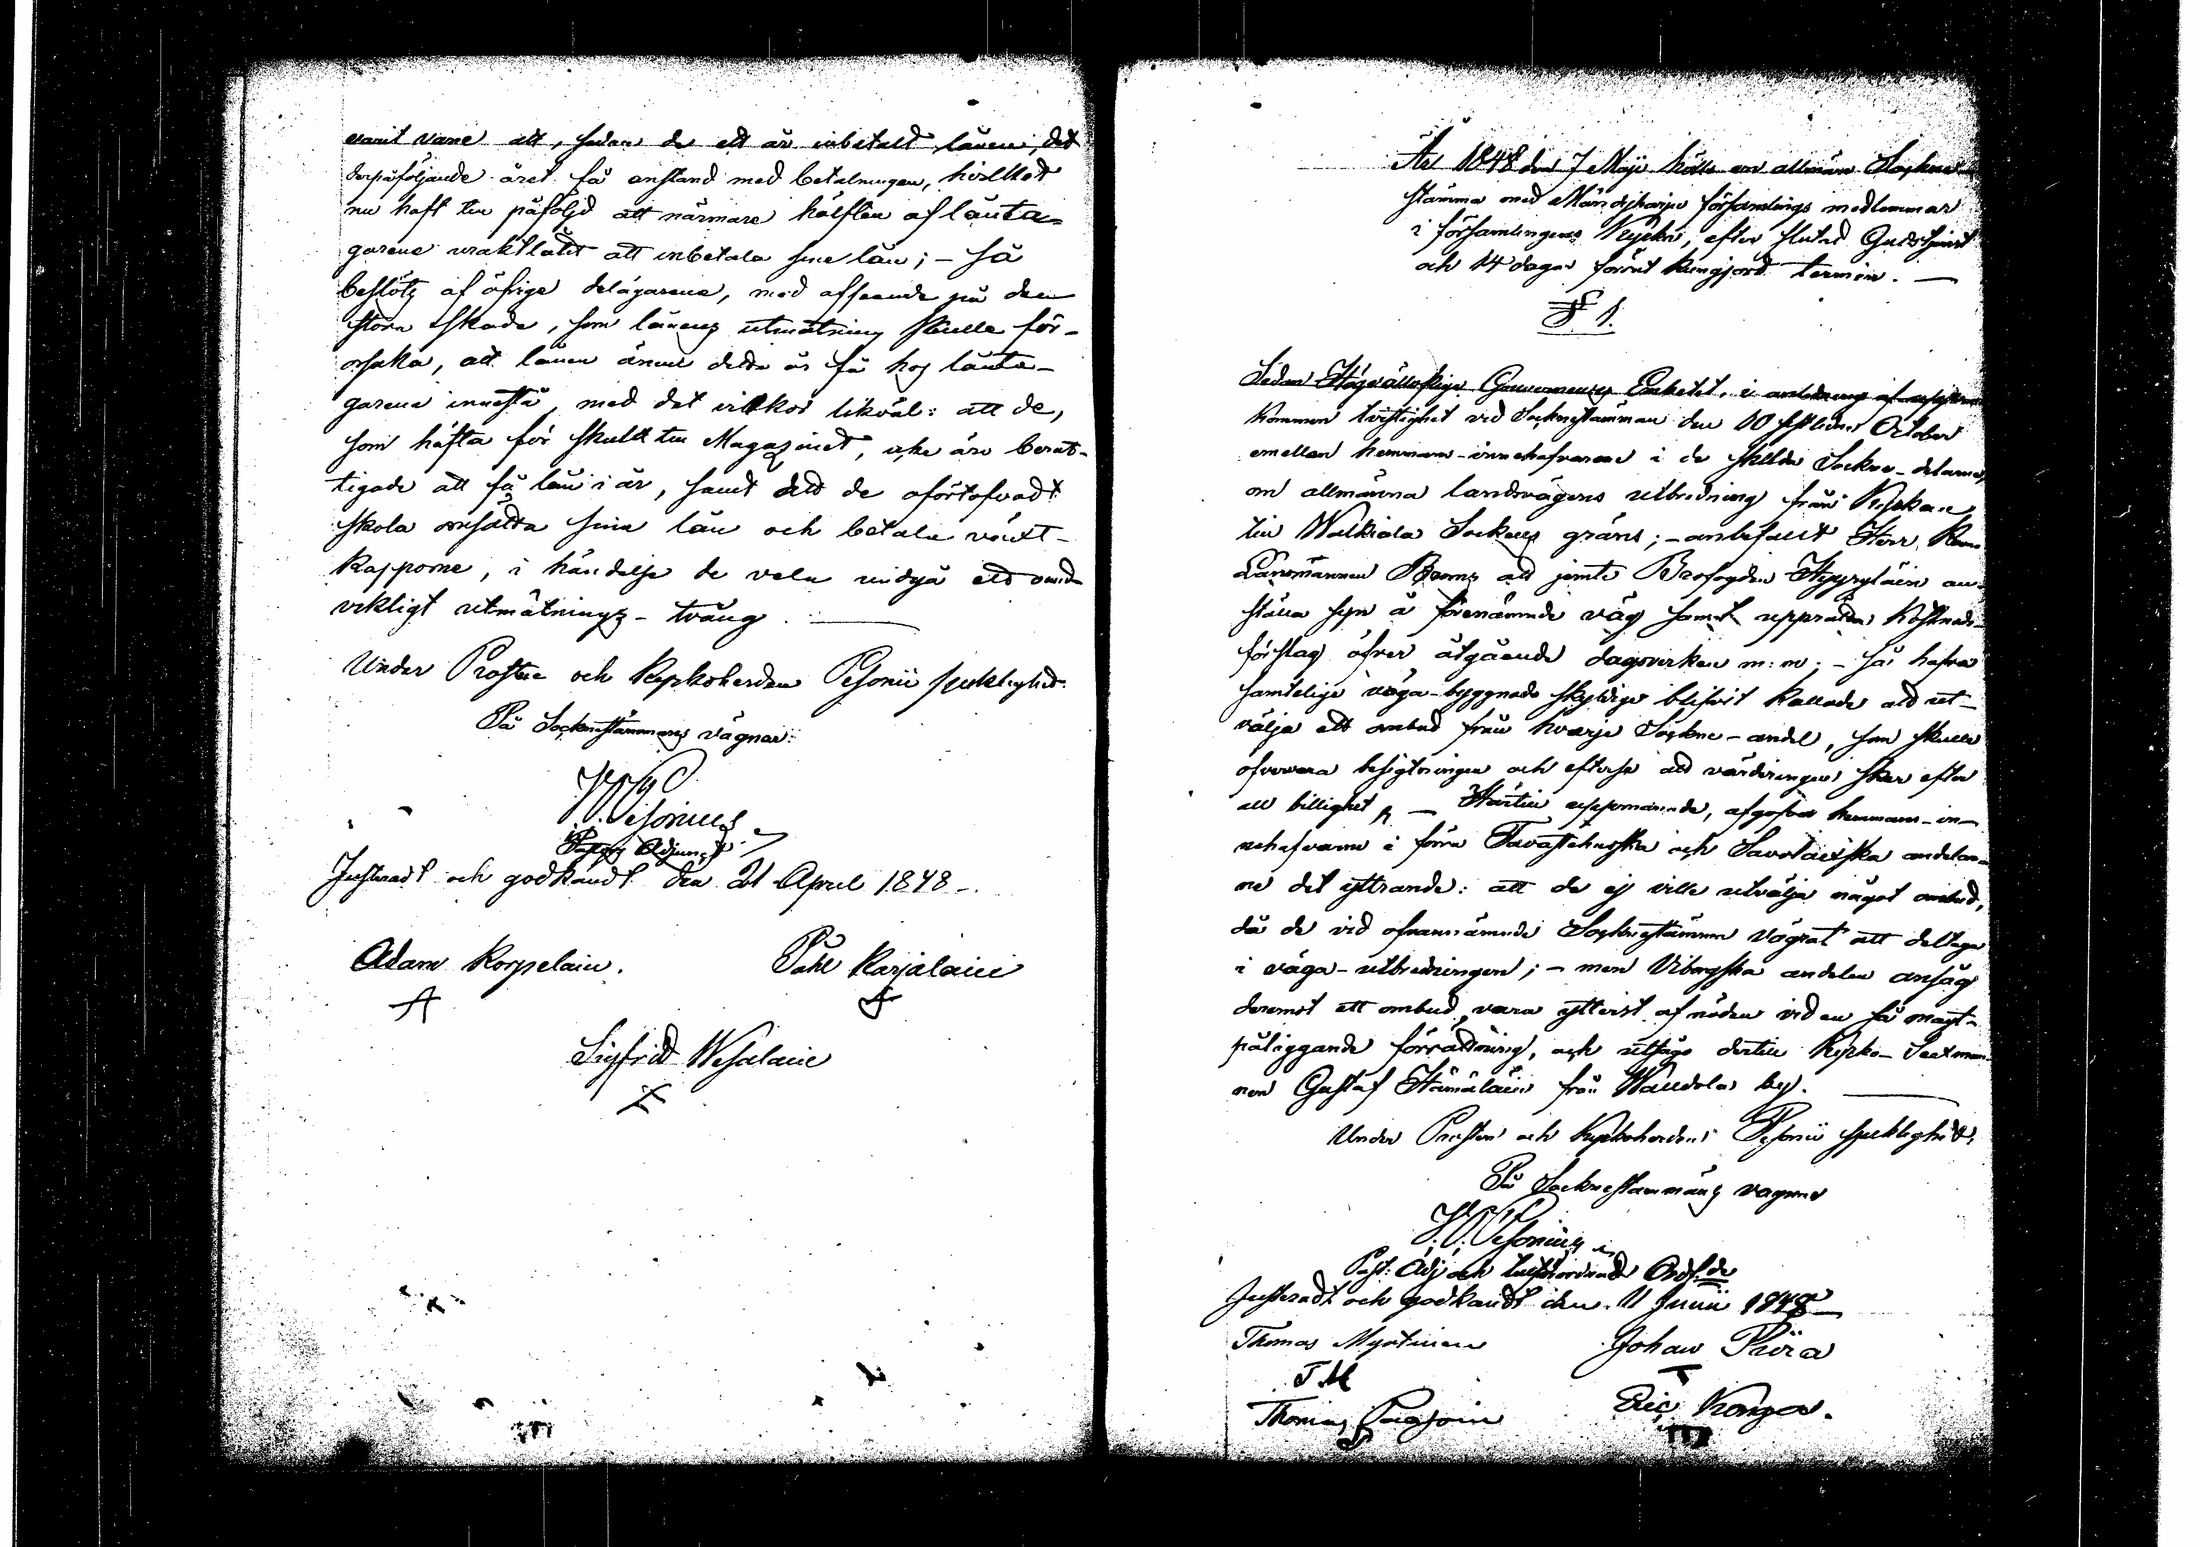 varit vane att, sedan de ett år inbetalt lånen, det
derpåföljande året få anstånd med betalningen, hvilket
nu haft till påföljd att närmare hälften af lånta-
garene uraktlåtit att inbetala sine lån; – så
beslöts af öfrige delägarene, med afseende på den
stora skada, som lånens utmätning skulle för-
orsaka, att lånen ännu detta år få hos lånta-
garena innestå, med det vilkor likväl: att de,
som häfta för skuld till Magazinet, icke äro berät-
tigade att få lån i år, samt att de oförtöfvadt
skola omsätta sina lån och betala växt-
kapporne, i händelse de vela undgå ett ound-
vikligt utmätnings-tvång.
Under Prosten och Kyrkoherden Pesonii sjuklighet.
På Sockenstämmans vägnar:
Pesonius
Pastors Adjunct
Justeradt och godkändt den 21 April 1848.
Adam Korpelain. Påhl Karjalain
Sigfrid Wesalain
År 1848 den 7 Maji hölls en allmän Sockne-
stämma med Mändyharju församlings medlemmar
i församlingens Kyrka, efter slutad Gudstjenst
och 14 dagar förut kungjord termin. –
§ 1.
Sedan Högvällofliga Gouvernements Embetet, i anledning af uppkommen
tvistighet vid Socknestämman den 10 sistlidne October
emellan hemmans-innehafvarene i de skilda Sockne-delarne,
om allmänna landsvägens utbredning från Kyrkan
till Walkiala Sockens gräns; – anbefallt Herr
Länsmannen Broms att jemte Brofogden Hyyryläin an-
ställa syn å förenämnde väg samt upprätta kostnads-
förslag öfver åtgående dagsverken m: m; – så hafva
samtelige väga-byggnads skyldige blifvit kallade att ut-
välja ett ombud från hvarje Sockne-andel, som skulle
öfvervara besigtningen och efterse att värderingen sker efter
all billighet – Härtill uppmanade, afgåfvo hemmans-in-
nehafvarne i förra Tavastehusska och Savolaxska andelar-
ne det yttrande: att de ej ville utvälja något ombud,
då de vid ofvannämnde Socknestämma vägrat att deltaga
i väga-utbredningen; – men Viborgska andelen ansåg
deremot ett ombud vara ytterst af nöden vid en så magt-
påliggande förrättning, och utsågo dertill Kyrko-Sexman-
nen Gustaf Hämäläin från Wandola by.
Under Prosten och Kyrkoherdens Pesonii sjuklighet,
På Socknestämmans vägnar
Pesonius
Past: Adj och tillförordnad Ordf:de
Justeradt och godkändt den 11 Junii 1848
Thomas Myntinen Johan Piira
T M
Thomas Eric Konga.